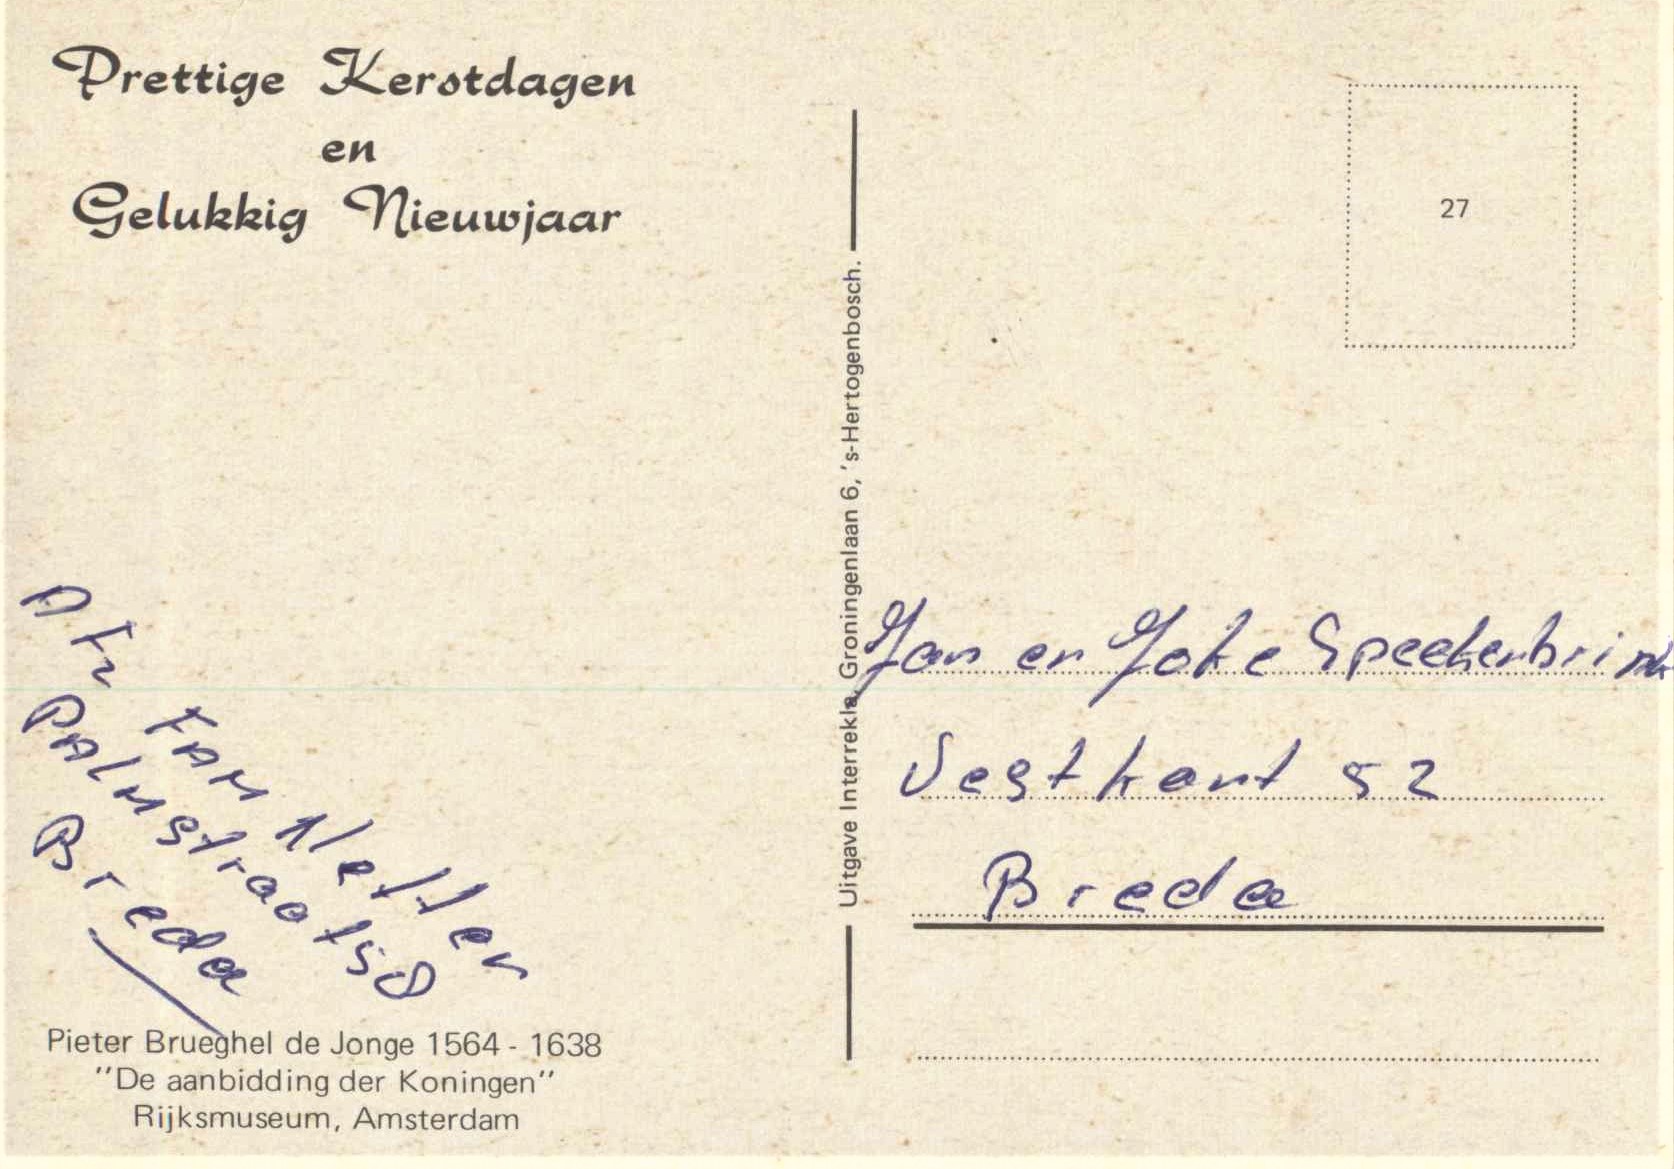 Prettige Kerstdagen
en
Gelukkig Nieuwjaar
27
Uitgave Interrekla, Groningenlaan 6, 's-Hertogenbosch.
Jan en Joke Speekenbrink
Vestkant 52
Breda
Afz
FAM Netten
PAlmstraat 58
Breda
Pieter Brueghel de Jonge 1564 - 1638
"De aanbidding der Koningen"
Rijksmuseum, Amsterdam